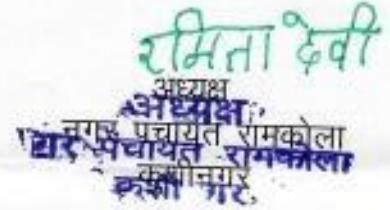 रमिता देवी
अध्यक्ष
अध्यक्ष
नगर पंचायत रामकोला
पंचायत रामकोला
कुशीनगर